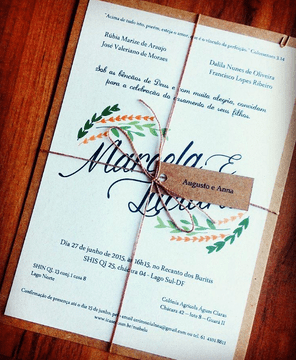 "Acima de tudo isto, porém, esteja o amor, que é o vínculo da perfeição." Colossenses 3.14
Rúbia Marize de Araujo
José Valeriano de Moraes
Dalila Nunes de Oliveira
Francisco Lopes Ribeiro
Sob as bênçãos de Deus e com muita alegria, convidam
para a celebração do casamento de seus filhos.
Marcela E
Augusto e Anna
Dia 27 de junho de 2015, às 16h15, no Recanto dos Buritis
SHIS QJ 25, chácara 04 - Lago Sul-DF
SHIN QJ
Lago Norte
Colônia Agrícola Águas Claras
Chácara
Confirmação de presença até o dia 15 de junho, por email